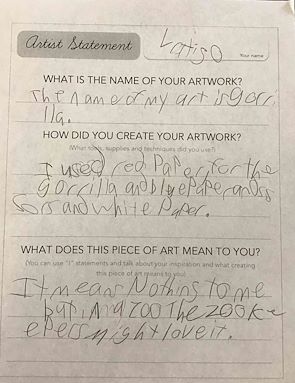 Artist Statement
Latigo
Your name
WHAT IS THE NAME OF YOUR ARTWORK?
The name of my art is Gorri
lla.
HOW DID YOU CREATE YOUR ARTWORK?
(What tools, supplies and techniques did you use?)
I used red PaPer, for the
gorrilla and blue PaPer and
and white PaPer.
WHAT DOES THIS PIECE OF ART MEAN TO YOU?
(You can use "I" statements and talk about your inspiration and what creating
this piece of art means to you)
It means Nothing to me
but in a zoo The zooke
epers might love it.